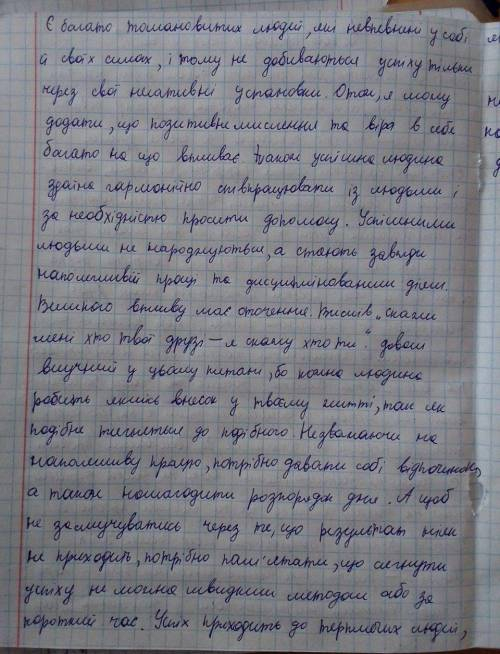 Є багато талановитих людей, які невпевнені у собі
й своїх силах, і тому не добиваються успіху тільки
через свої негативні установки. Отож, я можу
додати, що позитивне мислення та віра в себе
багато на що впливає. Також успішна людина
здатна гармонійно співпрацювати із людьми і
за необхідністю просити допомогу. Успішними
людьми не народжуються, а стають завдяки
наполегливій праці та дисциплінованим діям.
Великого впливу має оточення. Вислів „скажи
мені хто твої друзі – я скажу хто ти". доволі
влучний у цьому питані, бо кожна людина
робить якийсь внесок у твоєму житті, так як
подібне тягнеться до подібного. Незважаючи на
наполегливу працю, потрібно давати собі відпочинок,
а також налагодити розпорядок дня. А щоб
не засмучуватись через те, що результат ніяк
не приходить, потрібно пам'ятати, що сягнути
успіху не можна швидким методом або за
короткий час. Успіх приходить до терплячих людей,